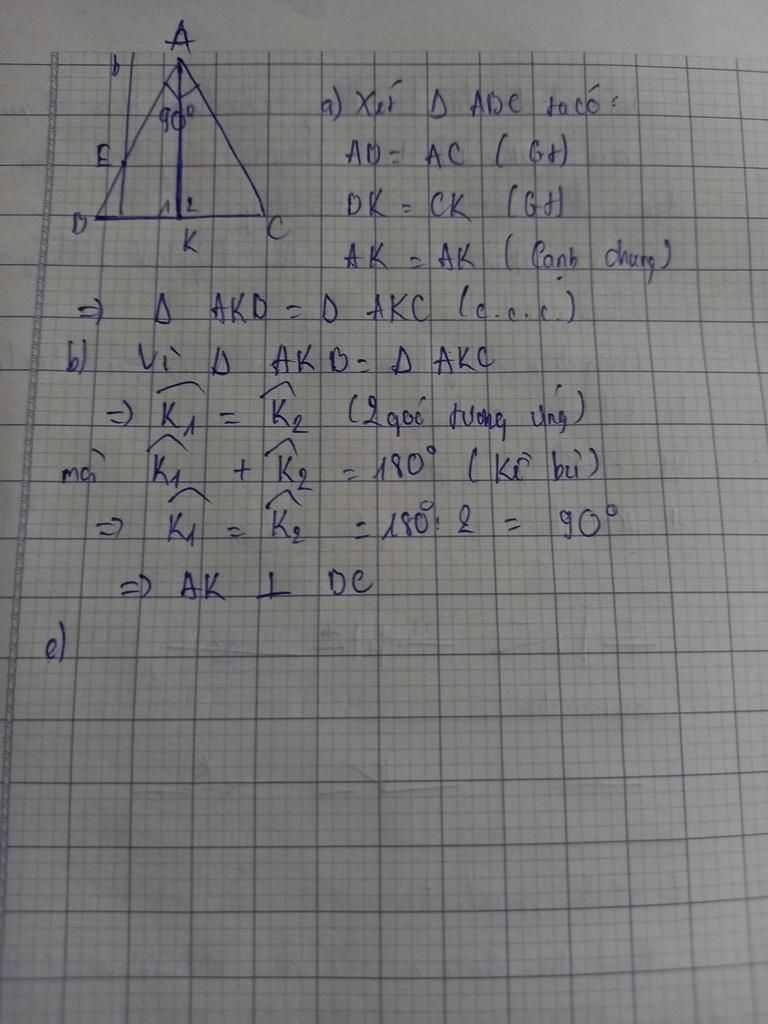 A
b
90°
E
D
1 2
C
K
a) Xét Δ ADC ta có:
AD = AC (Gt)
DK = CK (Gt)
AK = AK (Cạnh chung)
=> Δ AKD = Δ AKC (c.c.c)
b) Vì Δ AKD = Δ AKC
=> K̂₁ = K̂₂ (2 góc tương ứng)
mà K̂₁ + K̂₂ = 180° (Kề bù)
=> K̂₁ = K̂₂ = 180°: 2 = 90°
=> AK ⊥ DC
c)